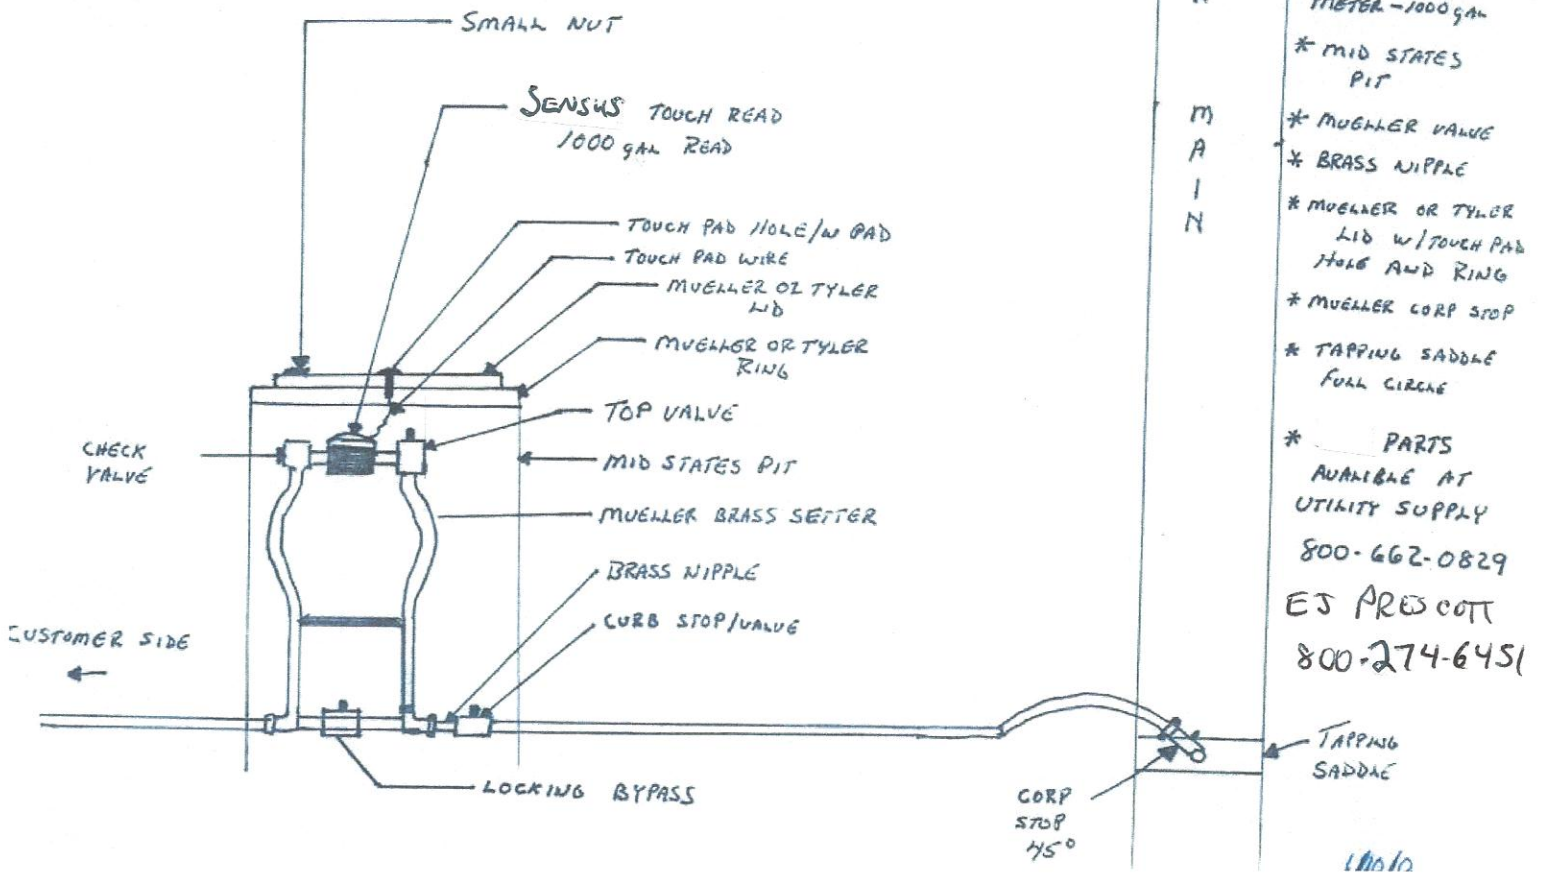 SMALL NUT
SENSUS TOUCH READ
1000 GAL READ
TOUCH PAD HOLE/W PAD
TOUCH PAD WIRE
MUELLER OR TYLER
LID
MUELLER OR TYLER
RING
TOP VALVE
MID STATES PIT
MUELLER BRASS SETTER
BRASS NIPPLE
CURB STOP/VALVE
CHECK
VALVE
CUSTOMER SIDE
LOCKING BYPASS
CORP
STOP
45°
TAPPING
SADDLE
M
A
I
N
METER - 1000 GAL
* MID STATES
PIT
* MUELLER VALVE
* BRASS NIPPLE
* MUELLER OR TYLER
LID W/TOUCH PAD
HOLE AND RING
* MUELLER CORP STOP
* TAPPING SADDLE
FULL CIRCLE
* PARTS
AVALIBLE AT
UTILITY SUPPLY
800-662-0829
EJ PRESCOTT
800-274-6451